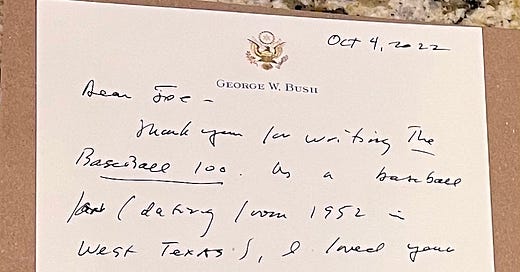 Oct 4, 2022
GEORGE W. BUSH
Dear Joe -
Thank you for writing The
Baseball 100. As a baseball
fan (dating from 1952 in
West Texas), I loved your